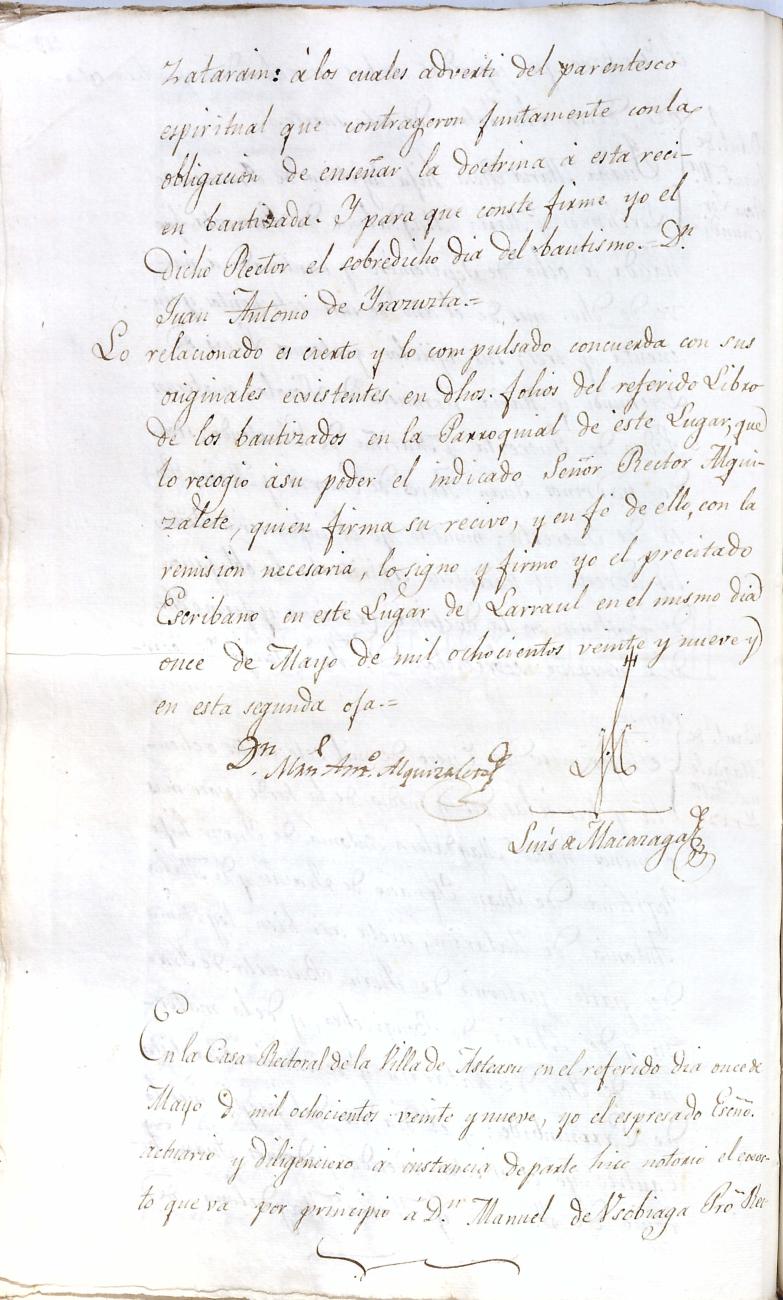 Zatarain: á los cuales adverti del parentesco
espiritual que contrageron juntamente con la
obligación de enseñar la doctrina á esta reci-
en bautizada. Y para que conste firme yo el
dicho Rector el sobredicho dia del bautismo.=Dn.
Juan Antonio de Yrazuzta.=
Lo relacionado es cierto y lo compulsado concuerda con sus
originales ecsistentes en dhos. folios del referido Libro
de los bautizados en la Parroquial de este Lugar, que
lo recogió á su poder el indicado Señor Rector Alqui-
zalete, quien firma su recivo, y en fé de ello, con la
remision necesaria, lo signo y firmo yo el precitado
Escribano en este Lugar de Larraul en el mismo dia
once de Mayo de mil ochocientos veinte y nueve y
en esta segunda oja.=
Dn. Manl. Anto. Alquizalete
Luis de Macazaga
En la Casa Rectoral de la Villa de Asteasu, en el referido dia once de
Mayo de mil ochocientos veinte y nueve, yo el espresado Escño.
actuario y diligenciero á instancia de parte hice notorio el ecsor-
to que va por principio á Dn. Manuel de Vsobiaga Pro. Rec-